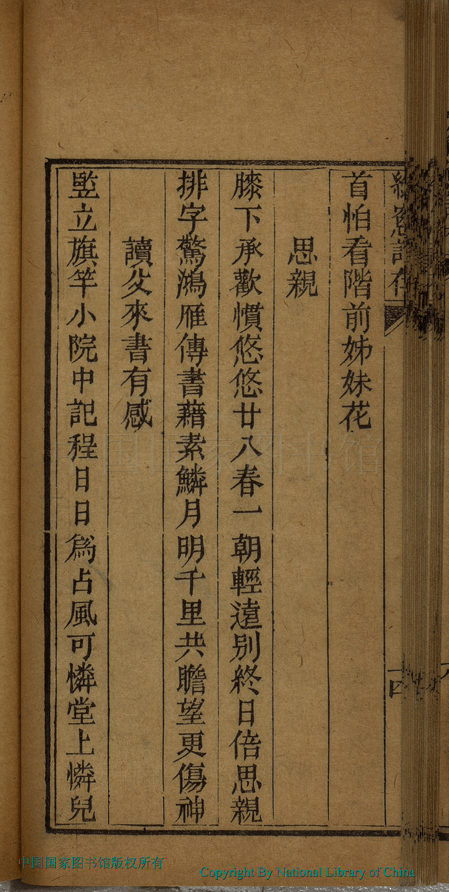 首怕看階前姊妹花
思親
膝下承歡慣悠悠廿八春一朝輕遠別終日倍思親
排字驚鴻雁傳書藉素鱗月明千里共瞻望更傷神
讀父來書有感
竪立旗竿小院中記程日日為占風可憐堂上憐兒
中国国家图书馆版权所有
Copyright By National Library of China